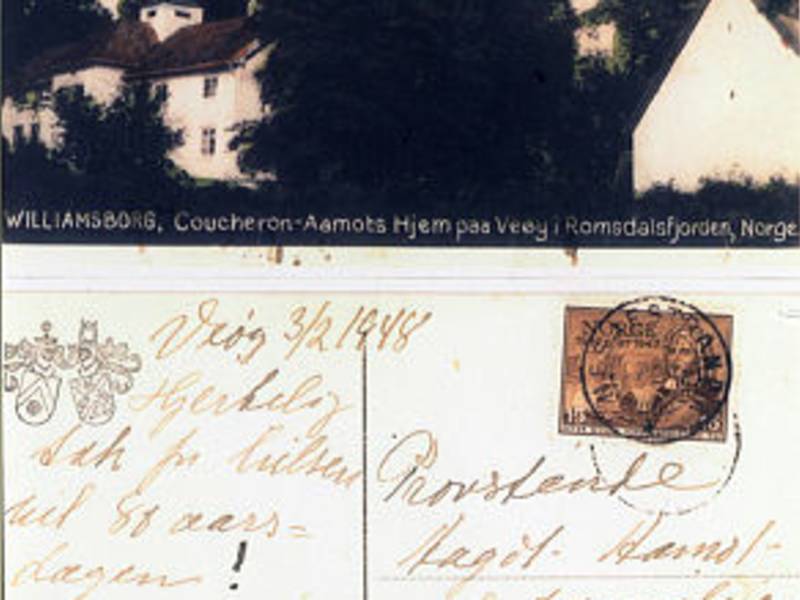 WILLIAMSBORG, Coucheron-Aamots Hjem paa Veøy i Romsdalsfjorden, Norge
Veøy 3/2 1948
Hjertelig
takk for hilsen
til 80 aars-
dagen!
NORGE
Provstende
Aamot-